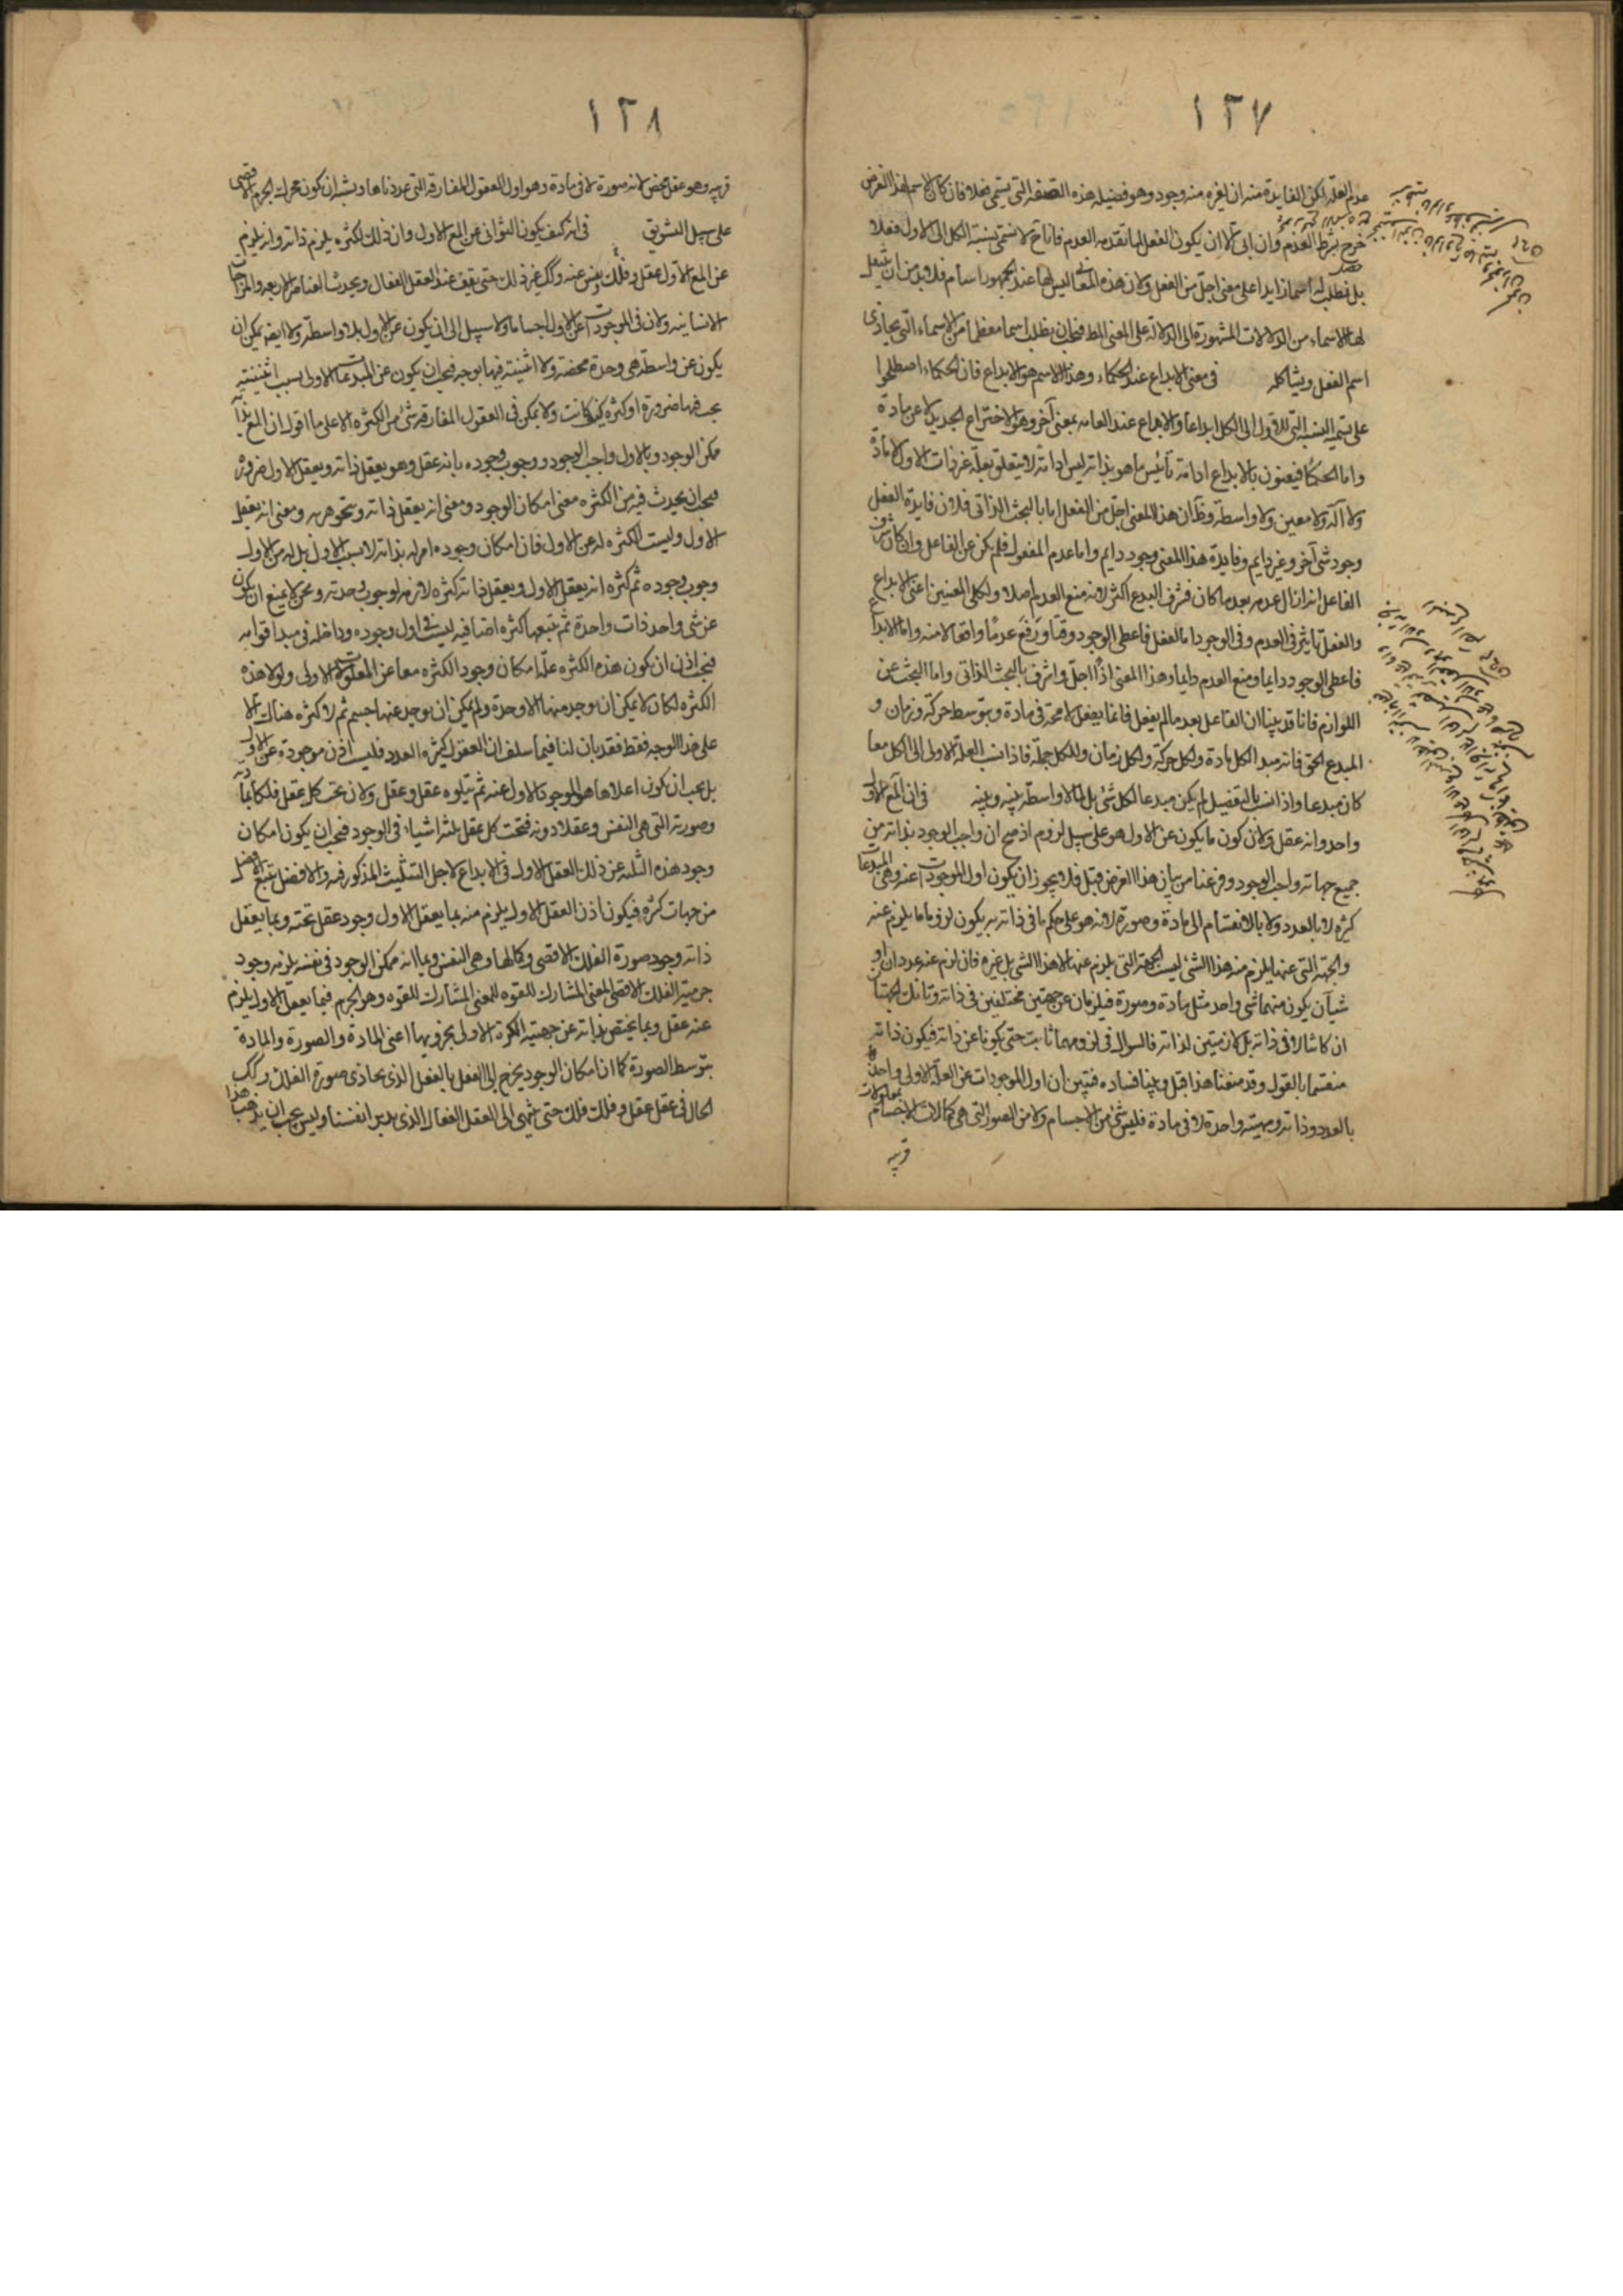 ١٢٧
عدم العلة لكن الفايدة منه ان لغيره منه وجود وهو فضيله هذه الصفه التى يسمى فعلا فان كان الاسم لهذا الغرض
خرج بشرط العدم وان ابى الا ان يكون الفعل لما تقدمه العدم فاناح لا نسمى نسبة الكل الى الاول فعلا
بل نطلب له اسما زايدا على معنى اجل من الفعل ولان هذه المعانى ليس لها عند الجمهور اسام فلابد من ان ينقل
لها الاسماء من الدلالات المشهورة الى الدلالة على المعنى المط فيجب ان يطلب اسما معظما من الاسماء التى يحاذى
اسم الفعل ويشاكله فى معنى الابداع عند الحكماء وهذا الاسم هو الابداع فان الحكماء اصطلحوا
على تسمية النسبة التى للاول الى الكل ابداعا والابداع عند العامه بمعنى آخر وهو الاختراع الجديد لا عن مادة
واما الحكماء فيعنون بالابداع ادامة تأييس ما هو بذاته ليس ادامة لا يتعلق بعلة غير ذات الاول لا مادة
ولا آلة ولا معين ولا واسطة وظ ان هذا المعنى اجل من الفعل اما بالبحث الذاتى فلان فايدة الفعل
وجود شئ آخر وغير دايم وفايدة هذا المعنى وجود دايم واما عدم المفعول فلم يكن عن الفاعل وان كان شرف
الفاعل انه ازال عدمه بعد ما كان فشرف المبدع اكثر لانه منع العدم اصلا ولكلى المعنيين اعنى الابداع
والفعل تاثير فى العدم وفى الوجود اما الفعل فاعطى الوجود وقتا ورفع عدمًا واقعا لا منه واما الابداع
فاعطى الوجود دايما ومنع العدم دايما وهذا المعنى اذًا اجل واشرف بالبحث الذاتى واما البحث عن
اللوازم فانا قد بينا ان الفاعل بعد ما لم يفعل فانما يفعل لا محة فى مادة وبتوسط حركة وزمان و
المبدع الحق فانه مبدا لكل مادة ولكل حركة ولكل زمان وللكل جملة فاذا نسب العلة الاولى الى الكل معا
كان مبدعا واذا نسب بالتفصيل لم يكن مبدعا لكل شئ بل لما لا واسطة بينه وبينه فى ان المع الاول
واحد وانه عقل ولان كون ما يكون عن الاول هو على سبيل لزوم اذ صح ان واجب الوجود بذاته من
جميع جهاته واجب الوجود وفرغنا من بيان هذا الغرض قبل فلا يجوز ان يكون اول الموجودات عنه وهى المبدعات
كثيره لا بالعدد ولا بالانقسام الى مادة وصورة لانه هو على حكم ما فى ذاته يكون لزوم ما يلزم عنه
والجهة التى عنها يلزم منه هذا الشئ ليست الجهة التى يلزم عنها لا هذا الشئ بل غيره فان لزم عنه عددان او
شيآن يكون منهما شئ واحد مثل مادة وصورة فيلزمان عن جهتين مختلفين فى ذاته وتانك الجهتان
ان كانتا لا فى ذاته بل لازمتين لذاته فالسوال فى لزومهما ثابت حتى يكونا عن ذاته فيكون ذاته
منقسما بالقول وقد منعنا هذا قبل وبينا فساده فتبين ان اول الموجودات عن العلة الاولى واحد
بالعدد وذاته ومهيته واحدة لا فى مادة فليس شئ من الاجسام ولا من الصور التى هى كمالات الاجسام معلولات
قريبه
١٢٨
قريبه وهو عقل محض لانه صورة لا فى مادة وهو اول العقول المفارقه التى عددناها ويشبه ان يكون محرك الجرم الاقصى
على سبيل التشويق فى انه كيف يكون الثوانى عن المع الاول وان ذلك لكثره يلزم ذاته وانه يلزم
عن المع الاول عقل وفلك ونفس عنه وكك غير ذلك حتى يقف عند العقل الفعال ويحدث العناصر الاربعه والمزاجات
الانسانيه ولان فى الموجودات عن الاول اجساما ولا سبيل الى ان يكون عن الاول بلا واسطة ولا ايضه يمكن ان
يكون عن واسطة هى وحدة محضه ولا اثنينية فيها بوجه فيجب ان يكون عن المبدعات الاولى بسبب اثنينية
يجب فيها ضرورة او كثره كيف كانت ولا يمكن فى العقول المفارقه شئ من الكثره الا على ما اقول ان المع بذاته
ممكن الوجود وبالاول واجب الوجود ووجوب وجوده بانه عقل وهو يعقل ذاته ويعقل الاول ضرورة
فيجب ان يحدث فيه من الكثره معنى امكان الوجود ومعنى انه يعقل ذاته ويتجوهر به ومعنى انه يعقل
الاول وليست الكثره له عن الاول فان امكان وجوده امر له بذاته لا بسبب الاول بل له من الاول
وجوب وجوده ثم كثره انه يعقل الاول ويعقل ذاته كثره لازمه لوجوب وحدته ونحن لا نمنع ان يكون
عن شئ واحد ذات واحدة ثم يتبعها كثره اضافيه ليست فى اول وجوده وداخله فى مبدا قوامه
فيجب اذن ان يكون هذه الكثره علة امكان وجود الكثره معا عن المعلولات الاولى ولولا هذه
الكثره لكان لا يمكن ان يوجد منها الا وحدة ولم يمكن ان يوجد عنها جسم ثم لا كثره هناك الا
على هذا الوجه فقط فقد بان لنا فيما سلف ان العقول كثيره العدد فليست اذن موجودة عن الاول
بل يجب ان يكون اعلاها هو الموجود الاول عنه ثم يتلوه عقل وعقل ولان تحت كل عقل فلكا بمادته
وصورته التى هى النفس وعقلا دونه فتحت كل عقل ثلثة اشياء فى الوجود فيجب ان يكون امكان
وجود هذه الثلثه عن ذلك العقل الاول فى الابداع لاجل التثليث المذكور فيه والافضل يتبع الافضل
من جهات كثره فيكون اذن العقل الاول يلزم منه بما يعقل الاول وجود عقل تحته وبما يعقل
ذاته وجود صورة الفلك الاقصى وكمالها وهى النفس وبما انه ممكن الوجود فى نفسه يلزمه وجود
جرمية الفلك الاقصى المعنى المشارك للقوه للمعنى المشارك للقوه وهو الجرم فبما يعقل الاول يلزم
عنه عقل وبما يختص بذاته عن جهتيه الكره الاولى بجزويها اعنى المادة والصورة والمادة
بتوسط الصورة كما ان امكان الوجود يخرج الى الفعل بالفعل الذى يحاذى صورة الفلك وكك
الحال فى عقل عقل وفلك فلك حتى ينتهى الى العقل الفعال الذى يدبر انفسنا وليس يجب ان يذهب هذا